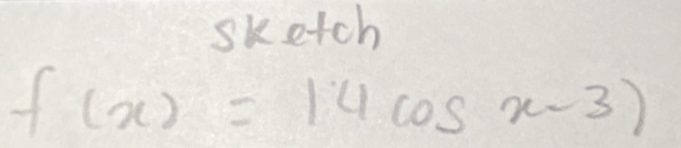 sketch
f(x) = |4 cos x - 3)